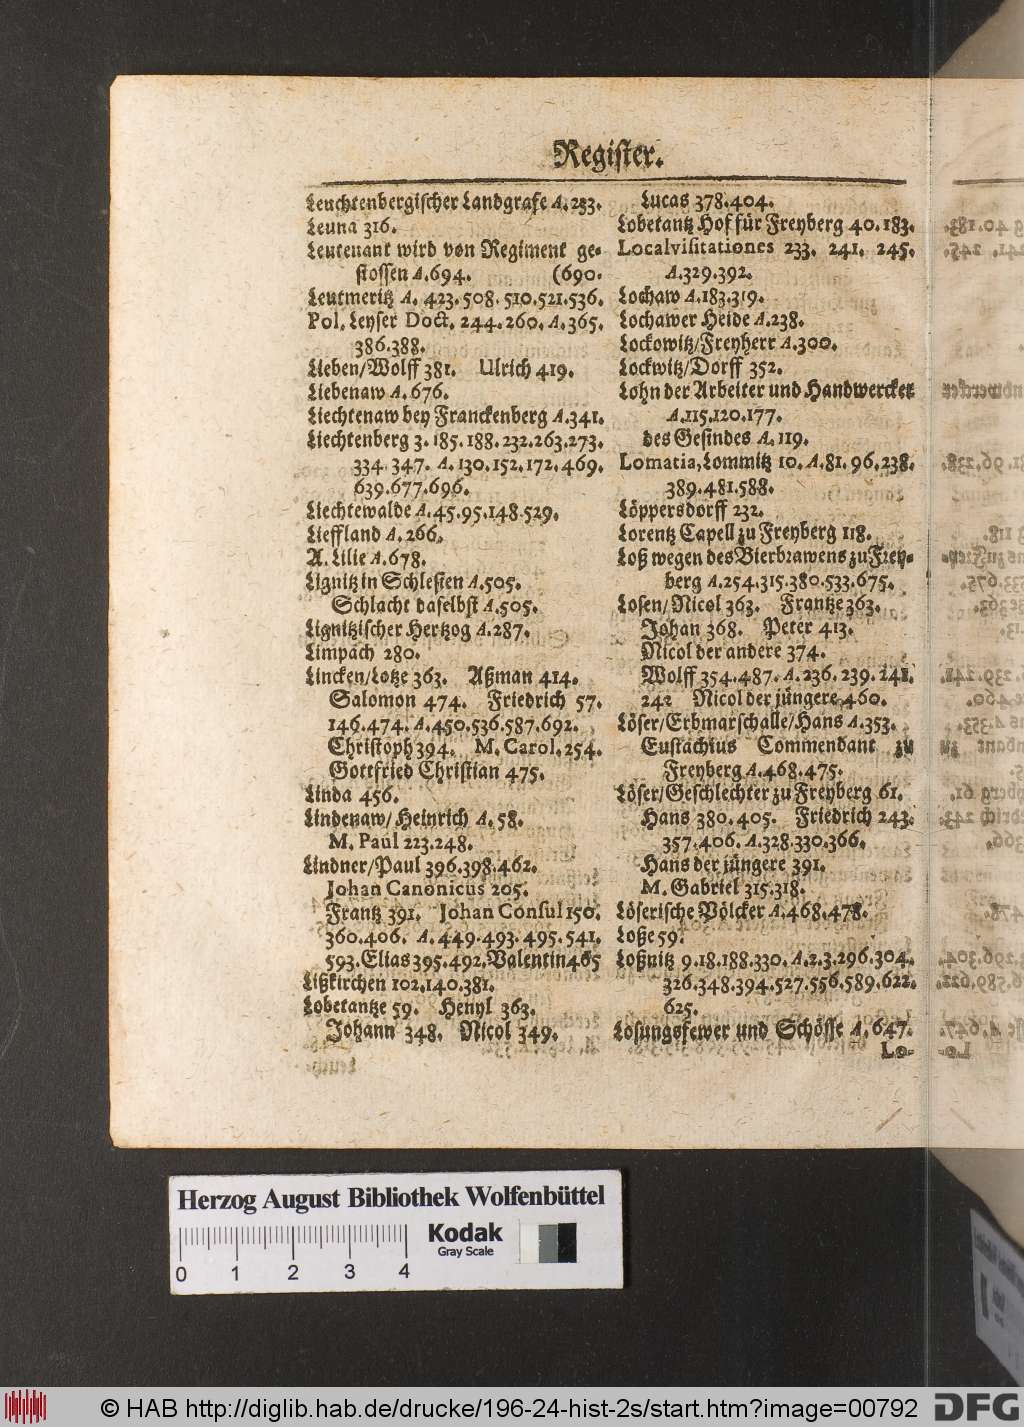 Register.
Leuchtenbergischer Landgrafe A. 233.
Leuna 316.
Leutenant wird von Regiment ge-
stossen A. 694. (690.
Leutmeritz A. 423. 508. 510. 521. 536.
Pol. Leyser Doct. 244. 260. A. 365.
386. 388.
Lieben/ Wolff 381. Ulrich 419.
Liebenaw A. 676.
Liechtenaw bey Franckenberg A. 341.
Liechtenberg 3. 185. 188. 232. 263. 273.
334. 347. A. 130. 152. 172. 469.
639. 677. 696.
Liechtewalde A. 45. 95. 148. 529.
Lieffland A. 266.
A. Lilie A. 678.
Lignitz in Schlesien A. 505.
Schlacht daselbst A. 505.
Lignitzischer Hertzog A. 287.
Limpach 280.
Lincken/ Lotze 363. Aßman 414.
Salomon 474. Friedrich 57.
146. 474. A. 450. 536. 587. 692.
Christoph 394. M. Carol. 254.
Gottfried Christian 475.
Linda 456.
Lindenaw/ Heinrich A. 58.
M. Paul 223. 248.
Lindner/ Paul 396. 398. 462.
Johan Canonicus 205.
Frantz 391. Johan Consul 150.
360. 406. A. 449. 493. 495. 541.
593. Elias 395. 492. Valentin 465
Lißkirchen 102. 140. 381.
Lobetantze 59. Henyl 363.
Johann 348. Nicol 349.
Lucas 378. 404.
Lobetantz Hof für Freyberg 40. 183.
Localvisitationes 233. 241. 245.
A. 329. 392.
Lochaw A. 183. 319.
Lochawer Heide A. 238.
Lockowitz/ Freyherr A. 300.
Lockwitz/ Dorff 352.
Lohn der Arbeiter und Handwercker
A. 115. 120. 177.
des Gesindes A. 119.
Lomatia, Lommitz 10. A. 81. 96. 238.
389. 481. 588.
Löppersdorff 232.
Lorentz Capell zu Freyberg 118.
Loß wegen des Bierbrawens zu Frey-
berg A. 254. 315. 380. 533. 675.
Losen/ Nicol 363. Frantze 363.
Johan 368. Peter 413.
Nicol der andere 374.
Wolff 354. 487. A. 236. 239. 241.
242 Nicol der jüngere 460.
Löser/ Erbmarschalle/ Hans A. 353.
Eustachius Commendant zu
Freyberg A. 468. 475.
Löser/ Geschlechter zu Freyberg 61.
Hans 380. 405. Friedrich 243.
357. 406. A. 328. 330. 366.
Hans der jüngere 391.
M. Gabriel 315. 318.
Löserische Völcker A. 468. 478.
Loße 59.
Loßnitz 9. 18. 188. 330. A. 2. 3. 296. 304.
326. 348. 394. 527. 556. 589. 622.
625.
Losungsfewer und Schösse A. 647.
Lo-
Herzog August Bibliothek Wolfenbüttel
Kodak
Gray Scale
0 1 2 3 4
© HAB http://diglib.hab.de/drucke/196-24-hist-2s/start.htm?image=00792
DFG